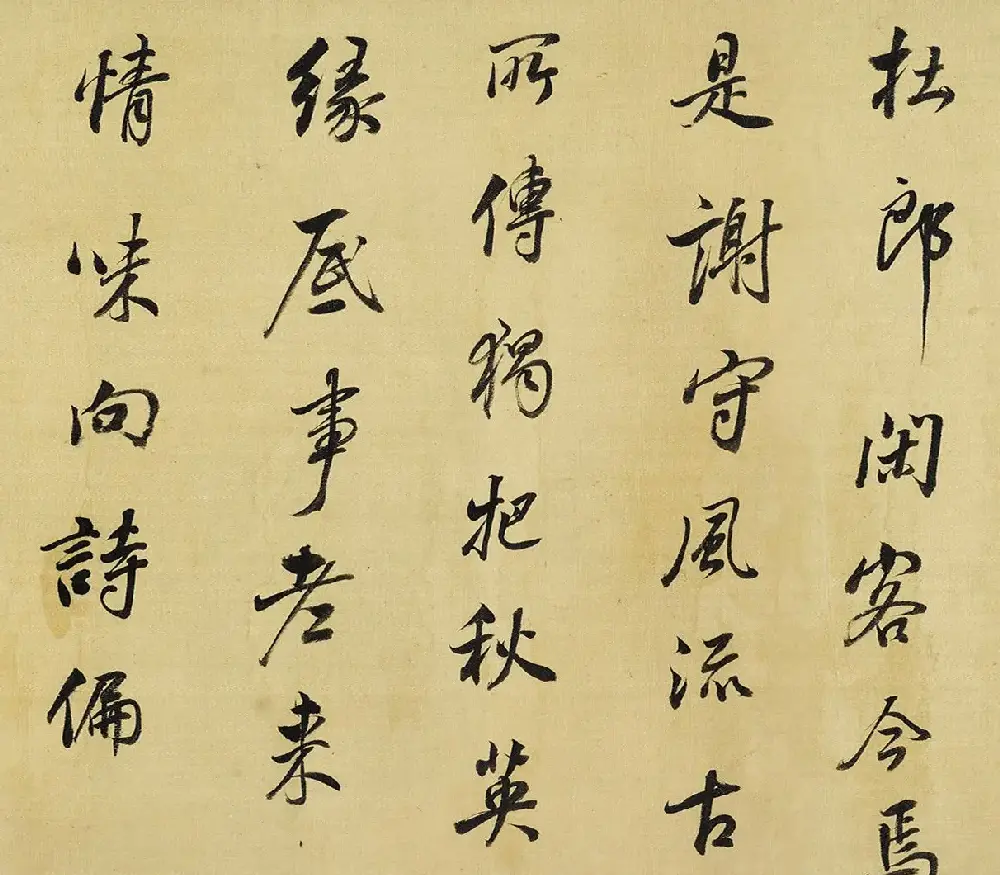 杜郎閑客今焉
是謝守風流古
所傳獨把秋英
緣底事老来
情味向詩偏